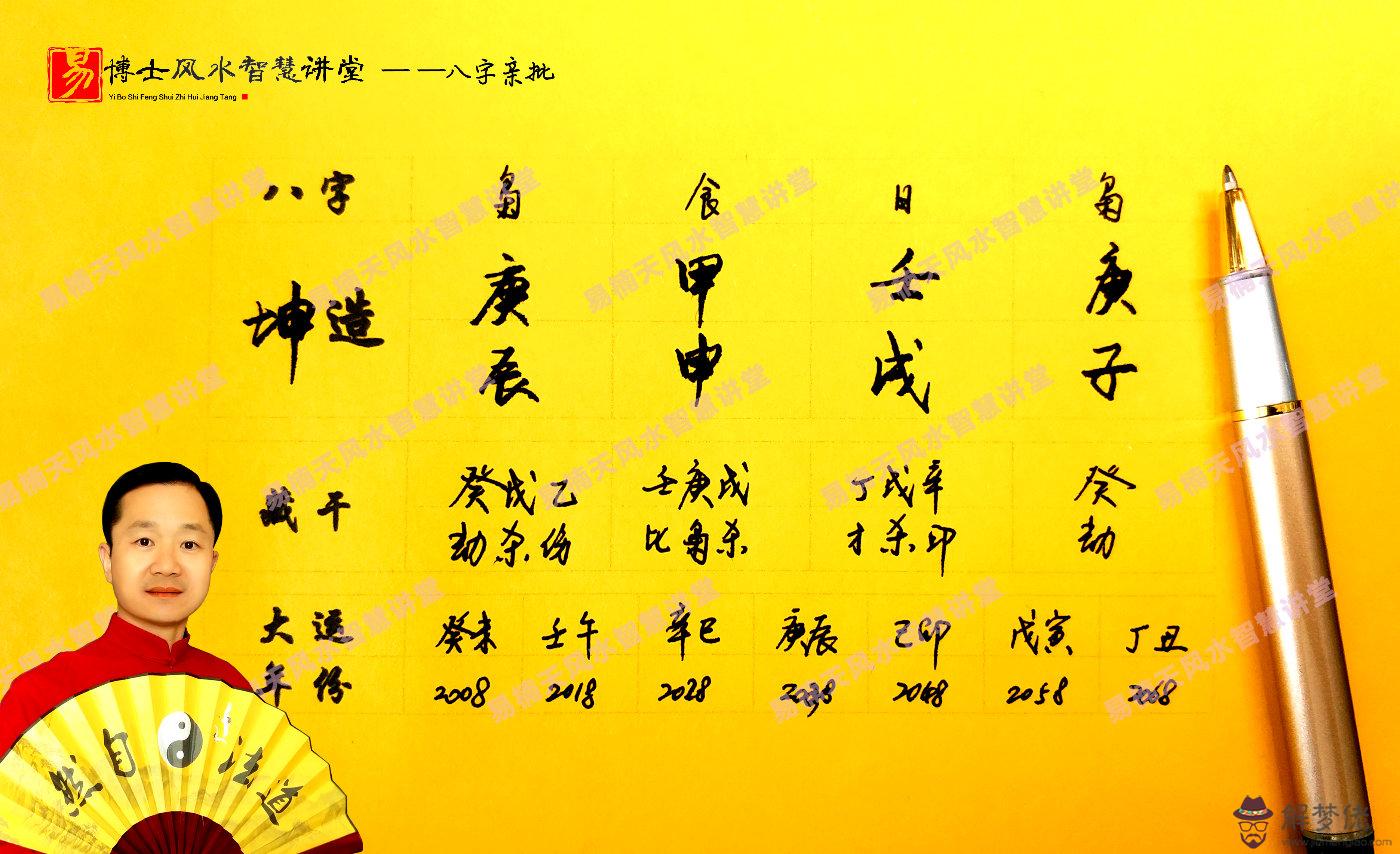 易博士风水智慧讲堂 ——八字亲批
Yi Bo Shi Feng Shui Zhi Hui Jiang Tang
八字 枭 食 日 枭
坤造 庚 甲 壬 庚
辰 申 戌 子
藏干 癸戊乙 壬庚戊 丁戊辛 癸
劫杀伤 比枭杀 才杀印 劫
大运 癸未 壬午 辛巳 庚辰 己卯 戊寅 丁丑
年份 2008 2018 2028 2038 2048 2058 2068
道法自然
易楠天风水智慧讲堂
解梦佬
www.jiemenglao.com